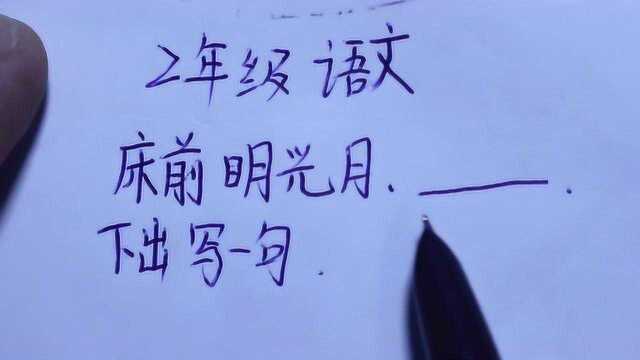 2年级 语文
床前明光月、______.
下出写一句.